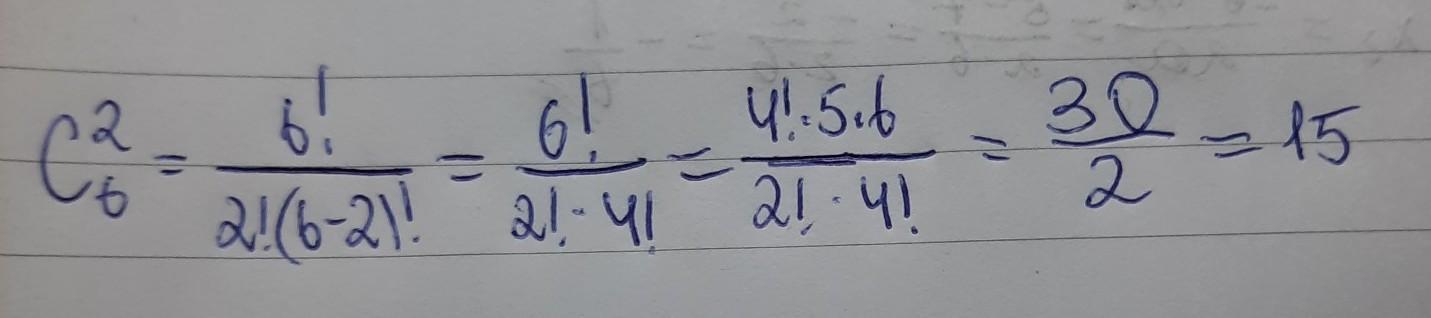 C_6^2 = \frac{6!}{2!(6-2)!} = \frac{6!}{2! \cdot 4!} = \frac{4! \cdot 5 \cdot 6}{2! \cdot 4!} = \frac{30}{2} = 15